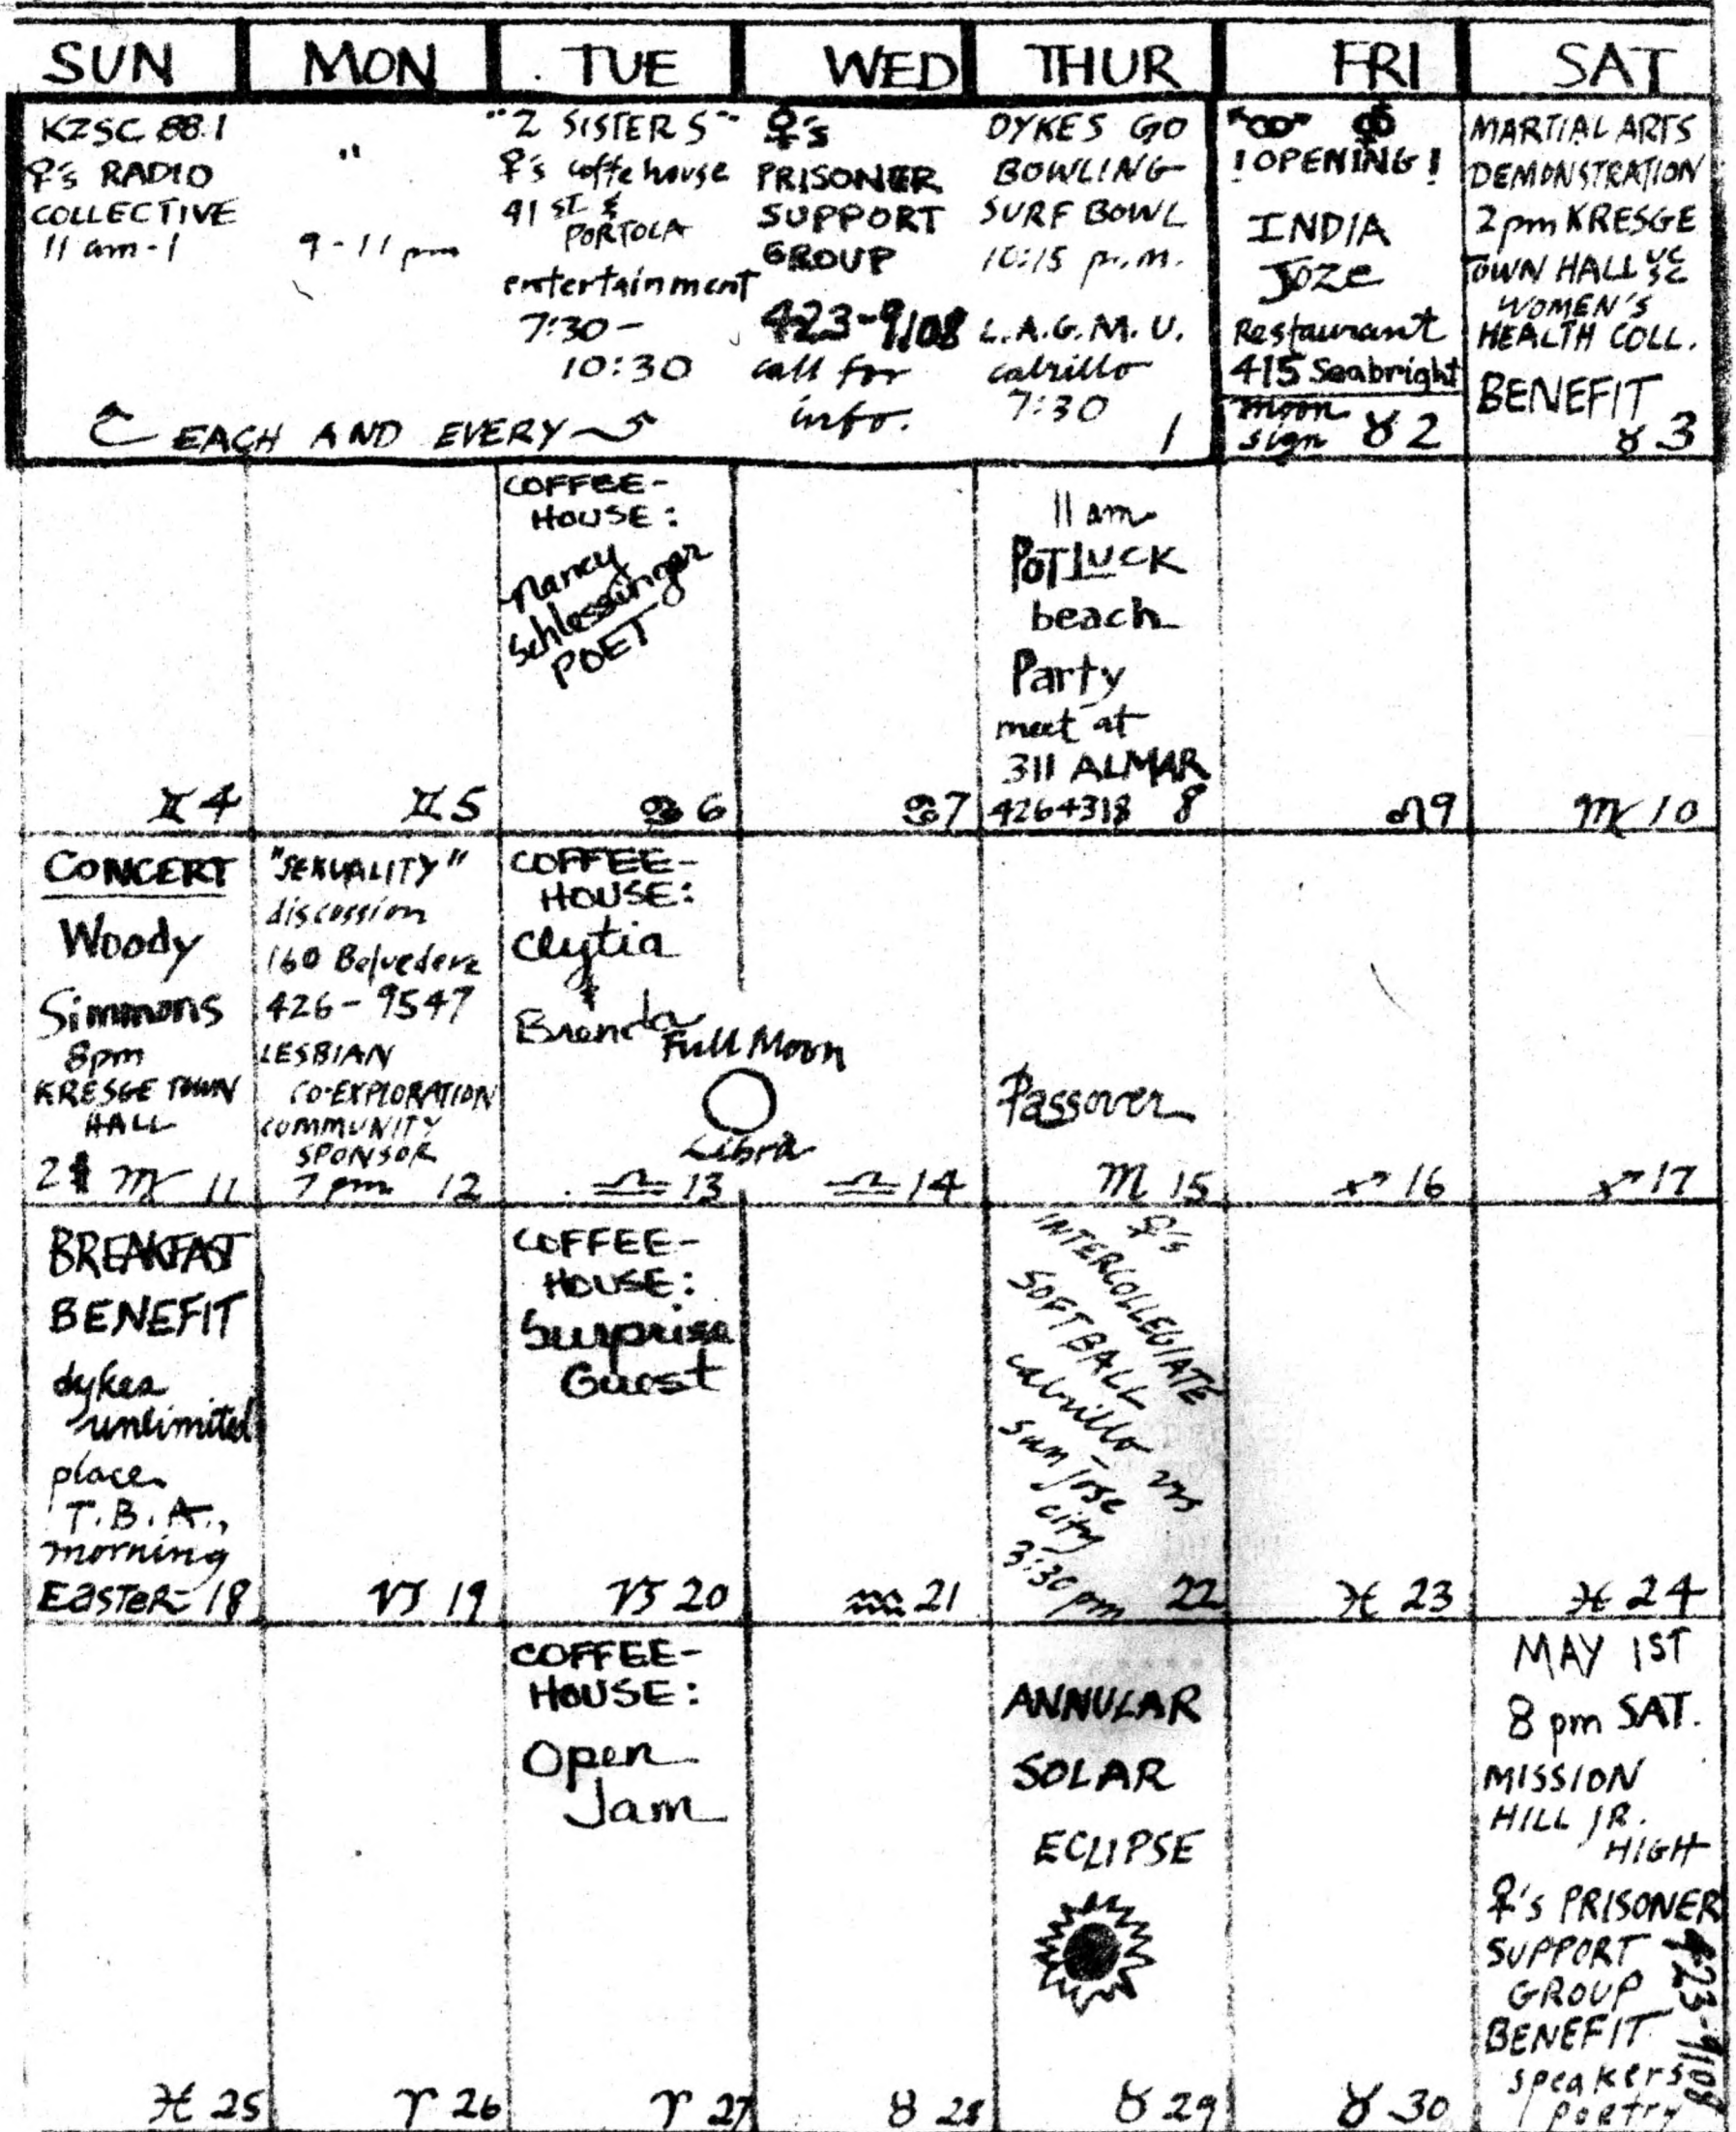 SUN MON TUE WED THUR FRI SAT
KZSC 88.1
♀'s RADIO
COLLECTIVE
11 am-1
"
9-11 pm
"2 SISTERS"
♀'s coffe house
41 ST &
PORTOLA
entertainment
7:30-
10:30
← EACH AND EVERY →
♀'s
PRISONER
SUPPORT
GROUP
423-9108
call for
info.
DYKES GO
BOWLING
SURF BOWL
10:15 p.m.
L.A.G.M.U.
cabrillo
7:30
1
!OPENING!
INDIA
Joze
Restaurant
415 Seabright
moon
sign ♉ 2
MARTIAL ARTS
DEMONSTRATION
2pm KRESGE
TOWN HALL UC
SC
WOMEN'S
HEALTH COLL.
BENEFIT
♉ 3
♊ 4
♊ 5
COFFEE-
HOUSE:
Nancy
Schlessinger
POET
♋ 6
♋ 7
11 am
POTLUCK
beach
Party
meet at
311 ALMAR
4264318 8
♌ 9
♍ 10
CONCERT
Woody
Simmons
8pm
KRESGE TOWN
HALL
2$ ♍ 11
"SEXUALITY"
discussion
160 Belvedere
426-9547
LESBIAN
CO-EXPLORATION
COMMUNITY
SPONSOR
7 pm 12
COFFEE-
HOUSE:
Clytia
&
Brenda
Full Moon
Libra
♎ 13
♎ 14
Passover
♏ 15
♐ 16
♐ 17
BREAKFAST
BENEFIT
dykes
unlimited
place
T.B.A.,
morning
EASTER- 18
♑ 19
COFFEE-
HOUSE:
Surprise
Guest
♑ 20
♒ 21
♀'s
INTERCOLLEGIATE
SOFTBALL
cabrillo vs
San Jose
city
3:30 pm 22
♓ 23
♓ 24
♓ 25
♈ 26
COFFEE-
HOUSE:
Open
Jam
♈ 27
♉ 28
ANNULAR
SOLAR
ECLIPSE
♉ 29
♉ 30
MAY 1ST
8 pm SAT.
MISSION
HILL JR.
HIGH
♀'s PRISONER
SUPPORT
GROUP
BENEFIT
speakers
poetry
423-9108